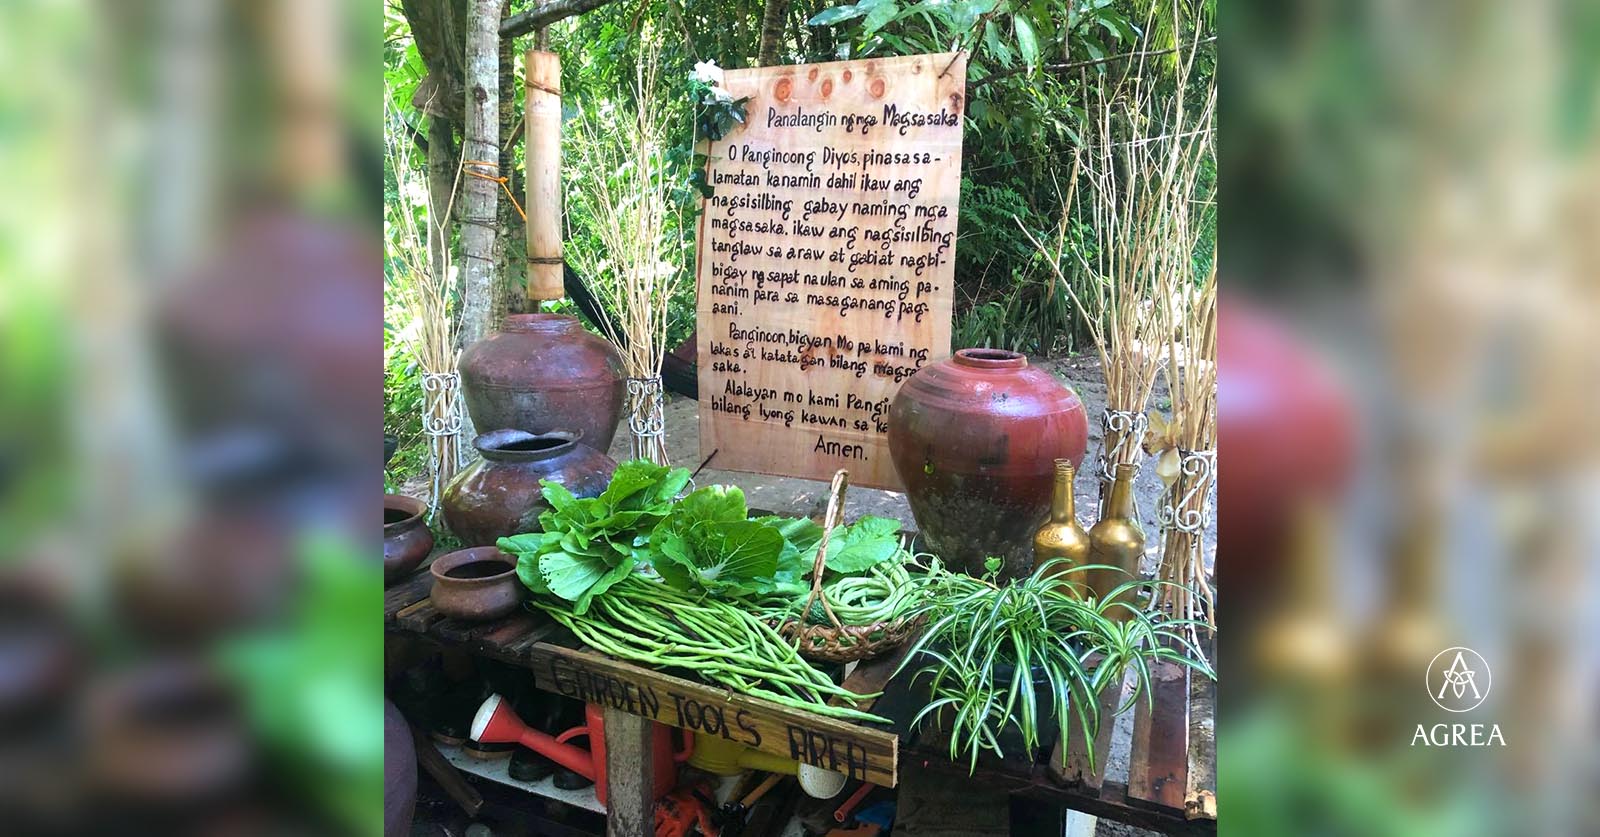 Panalangin ng mga Magsasaka
O Panginoong Diyos, pinasasa-
lamatan kanamin dahil ikaw ang
nagsisilbing gabay naming mga
magsasaka. ikaw ang nagsisilbing
tanglaw sa araw at gabi at nagbi-
bigay ng sapat na ulan sa aming pa-
nanim para sa masaganang pag-
aani.
Panginoon, bigyan Mo pa kami ng
lakas at katatagan bilang
saka.
Alalayan mo kami
bilang Iyong kawan sa
Amen.
GARDEN TOOLS AREA
AGREA